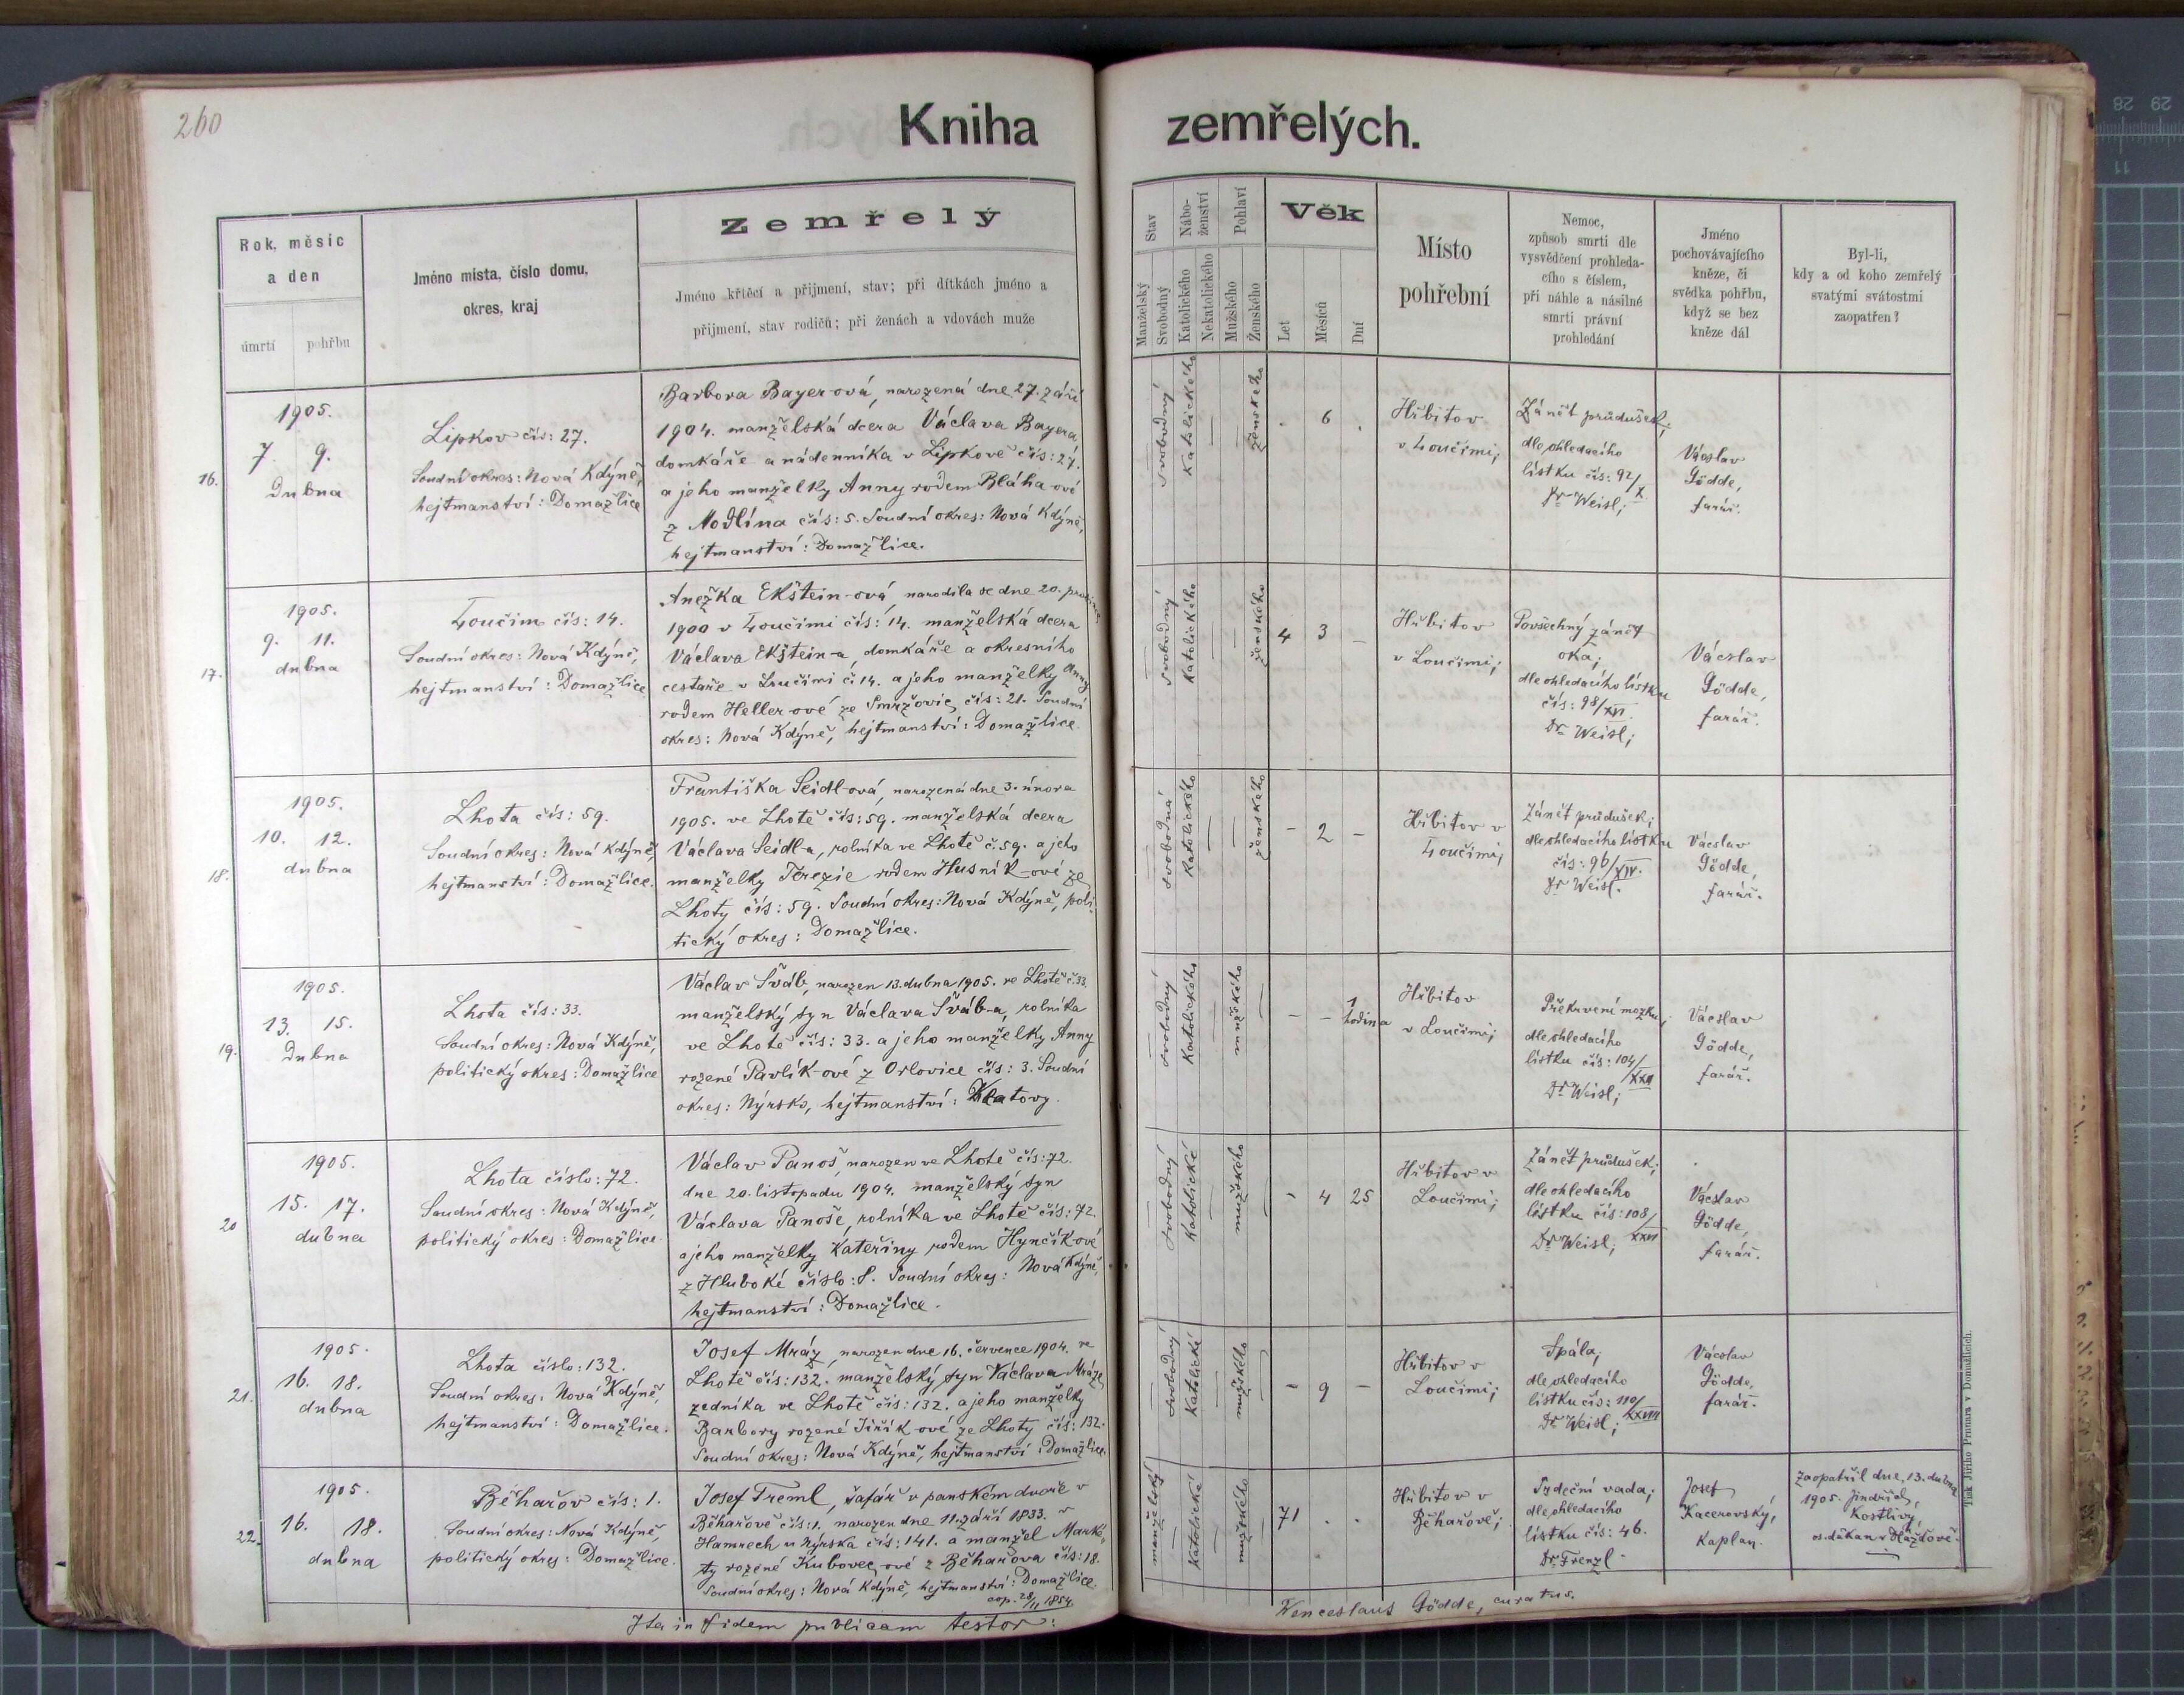 260
Kniha zemřelých.
Rok, měsíc
a den
úmrtí pohřbu
Jméno místa, číslo domu,
okres, kraj
Zemřelý
Jméno křticí a přijmení, stav; při dítkách jméno a
přijmení, stav rodičů; při ženách a vdovách muže
Stav
Manželský
Svobodný
Nábo-
ženství
Katolického
Nekatolického
Pohlaví
Mužského
Ženského
Věk
Let
Měsíců
Dní
Místo
pohřební
Nemoc,
způsob smrti dle
vysvědčení prohleda-
cího s číslem,
při náhle a násilné
smrti právní
prohledání
Jméno
pochovávajícího
kněze, či
svědka pohřbu,
když se bez
kněze dál
Byl-li,
kdy a od koho zemřelý
svatými svátostmi
zaopatřen?
16.
1905.
7. 9.
Dubna
Lipkov čís: 27.
Soudní okres: Nová Kdýně,
hejtmanství: Domažlice
Barbora Bayer-ová, narozená dne 27. září
1904. manželská dcera Václava Bayera,
domkáře a nádenníka v Lipkově čís: 27.
a jeho manželky Anny rodem Bláha-ové
z Modlína čís: 5. Soudní okres: Nová Kdýně,
hejtmanství: Domažlice.
svobodný
Katolického
ženského
. 6 .
Hřbitov
v Loučimi;
Zánět průdušek;
dle ohledacího
lístku čís: 92/X
Dr Weisl;
Václav
Gödde,
farář.
17.
1905.
9. 11.
dubna
Loučim čís: 14.
Soudní okres: Nová Kdýně,
hejtmanství: Domažlice
Anežka Ekštein-ová narodila se dne 20. prosince
1900 v Loučimi čís: 14. manželská dcera
Václava Ekštein-a, domkáře a okresního
cestaře v Loučimi č. 14. a jeho manželky Anny
rodem Heller-ové ze Smržovic čís: 21. Soudní
okres: Nová Kdýně, hejtmanství: Domažlice.
svobodný
Katolického
ženského
4 3 –
Hřbitov
v Loučimi;
Povšechný zánět
oka;
dle ohledacího lístku
čís: 98/XVI.
Dr Weisl;
Václav
Gödde,
farář.
18.
1905.
10. 12.
dubna
Lhota čís: 59.
Soudní okres: Nová Kdýně,
hejtmanství: Domažlice.
Františka Seidl-ová, narozená dne 3. února
1905. ve Lhotě čís: 59. manželská dcera
Václava Seidl-a, rolníka ve Lhotě č. 59. a jeho
manželky Terezie rodem Husník-ové ze
Lhoty čís: 59. Soudní okres: Nová Kdýně, poli-
tický okres: Domažlice.
svobodná
Katolického
ženského
– 2 –
Hřbitov v
Loučimi;
Zánět průdušek;
dle ohledacího lístku
čís: 96/XIV.
Dr Weisl.
Václav
Gödde,
farář.
19.
1905.
13. 15.
Dubna
Lhota čís: 33.
Soudní okres: Nová Kdýně,
politický okres: Domažlice
Václav Šváb, narozen 13. dubna 1905. ve Lhotě č. 33.
manželský syn Václava Šváb-a, rolníka
ve Lhotě čís: 33. a jeho manželky Anny
rozené Pavlík-ové z Orlovice čís: 3. Soudní
okres: Nýrsko, hejtmanství: Klatovy.
svobodný
Katolického
mužského
– – 1 hodina
Hřbitov
v Loučimi;
Překrvení mozku;
dle ohledacího
lístku čís: 104/
Dr Weisl;
Václav
Gödde,
farář.
20
1905.
15. 17.
dubna
Lhota číslo: 72.
Soudní okres: Nová Kdýně,
politický okres: Domažlice
Václav Panoš, narozen ve Lhotě čís: 72.
dne 20. listopadu 1904. manželský syn
Václava Panoše, rolníka ve Lhotě čís: 72.
a jeho manželky Kateřiny rodem Hynčíkové
z Hluboké číslo: 8. Soudní okres: Nová Kdýně,
hejtmanství: Domažlice.
svobodný
Katolické
mužského
. 4 25
Hřbitov v
Loučimi;
Zánět průdušek;
dle ohledacího
lístku čís: 108/
Dr Weisl;
Václav
Gödde,
farář.
21.
1905.
16. 18.
dubna
Lhota číslo: 132.
Soudní okres: Nová Kdýně,
hejtmanství: Domažlice.
Josef Mráz, narozen dne 16. července 1904. ve
Lhotě čís: 132. manželský syn Václava Mráze,
zedníka ve Lhotě čís: 132. a jeho manželky
Barbory rozené Jiřík-ové ze Lhoty čís: 132.
Soudní okres: Nová Kdýně, hejtmanství: Domažlice.
svobodný
Katolické
mužského
– 9 –
Hřbitov v
Loučimi;
Spála;
dle ohledacího
lístku čís: 110/XXVIII
Dr Weisl;
Václav
Gödde,
farář.
22.
1905.
16. 18.
dubna
Běhařov čís: 1.
Soudní okres: Nová Kdýně,
politický okres: Domažlice.
Josef Treml, šafář v panském dvoře v
Běhařově čís: 1. narozen dne 11. září 1833. v
Hamrech u Nýrska čís: 141. a manžel Marké-
ty rozené Kubovec-ové z Běhařova čís: 18.
Soudní okres: Nová Kdýně, hejtmanství: Domažlice.
cop. 28/11 1854.
manželský
Katolické
mužského
71 . .
Hřbitov v
Běhařově;
Srdeční vada;
dle ohledacího
lístku čís: 46.
Dr Frenzl.
Josef
Kacerovský,
Kaplan.
Zaopatřil dne 13. dubna
1905. Jindřich
Kostlivý,
os. děkan v
Ita in fidem publicam testor:
Wenceslaus Gödde, curatus.
Tisk Jiřího Prunara v Domažlicích.